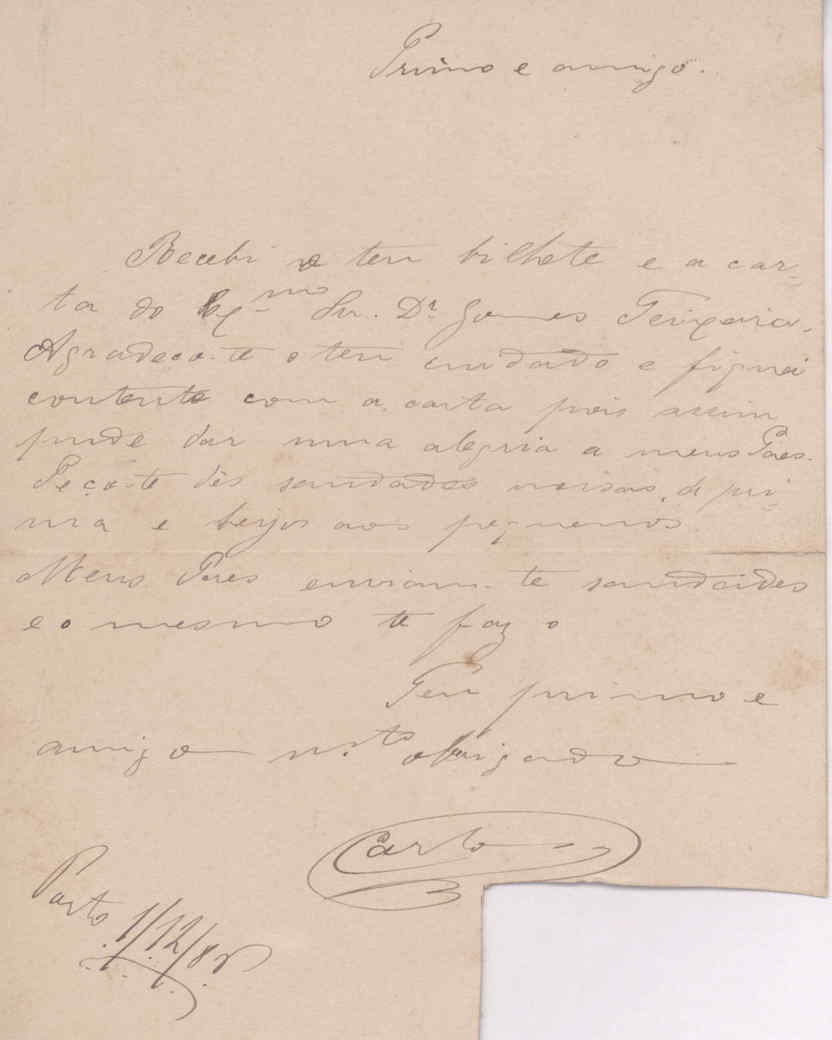 Primo e amigo.
Recebi o teu bilhete e a car-
ta do Ex.mo Snr. Dr. Gomes Teixeira.
Agradeço-te o teu cuidado e fiquei
contente com a carta pois assim
pude dar uma alegria a meus Paes.
Peço-te dês saudades nossas, á pri-
ma e beijos aos pequenos.
Meus Paes enviam-te saudades
e o mesmo te faz o
Teu primo e
amigo m.to obrigado
Carlos
Porto 1/12/88